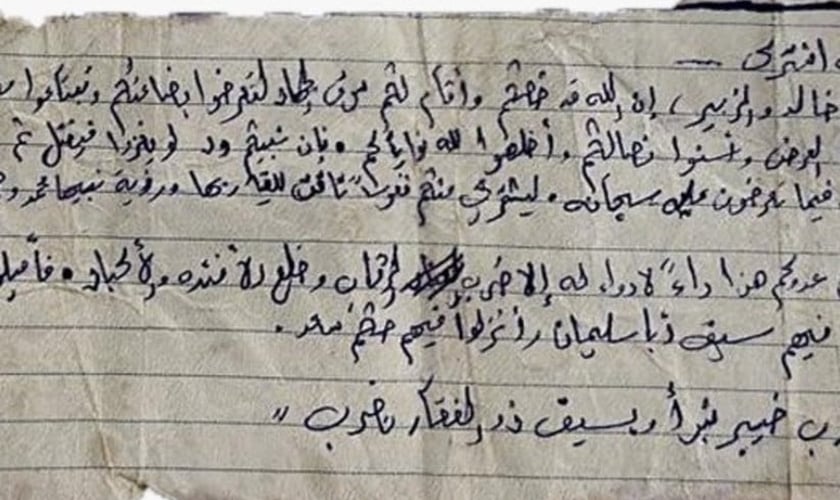 افتري
خالد والزبير، إن الله قد خصكم وأقام لكم سوق جهاد لتعرضوا بضاعتكم وتبتاعوا
العرض وأحسنوا نضالكم وأخلصوا لله نواياكم. فإن نبيكم ود لو يغزوا فيقتل ثم
فيما تعرضون عليه سبحانه. ليشتري منكم نفوساً تاقت للقاء ربها ورؤية نبيها محمد
عدوكم هذا داءً لا دواء له إلا ضرب الرقاب وخلع الأفئدة والأكباد.
فيهم سيف أبا سليمان وأنزلوا فيهم حكم سعد.
خيبر نبدأ وبسيف ذو الفقار نضرب "